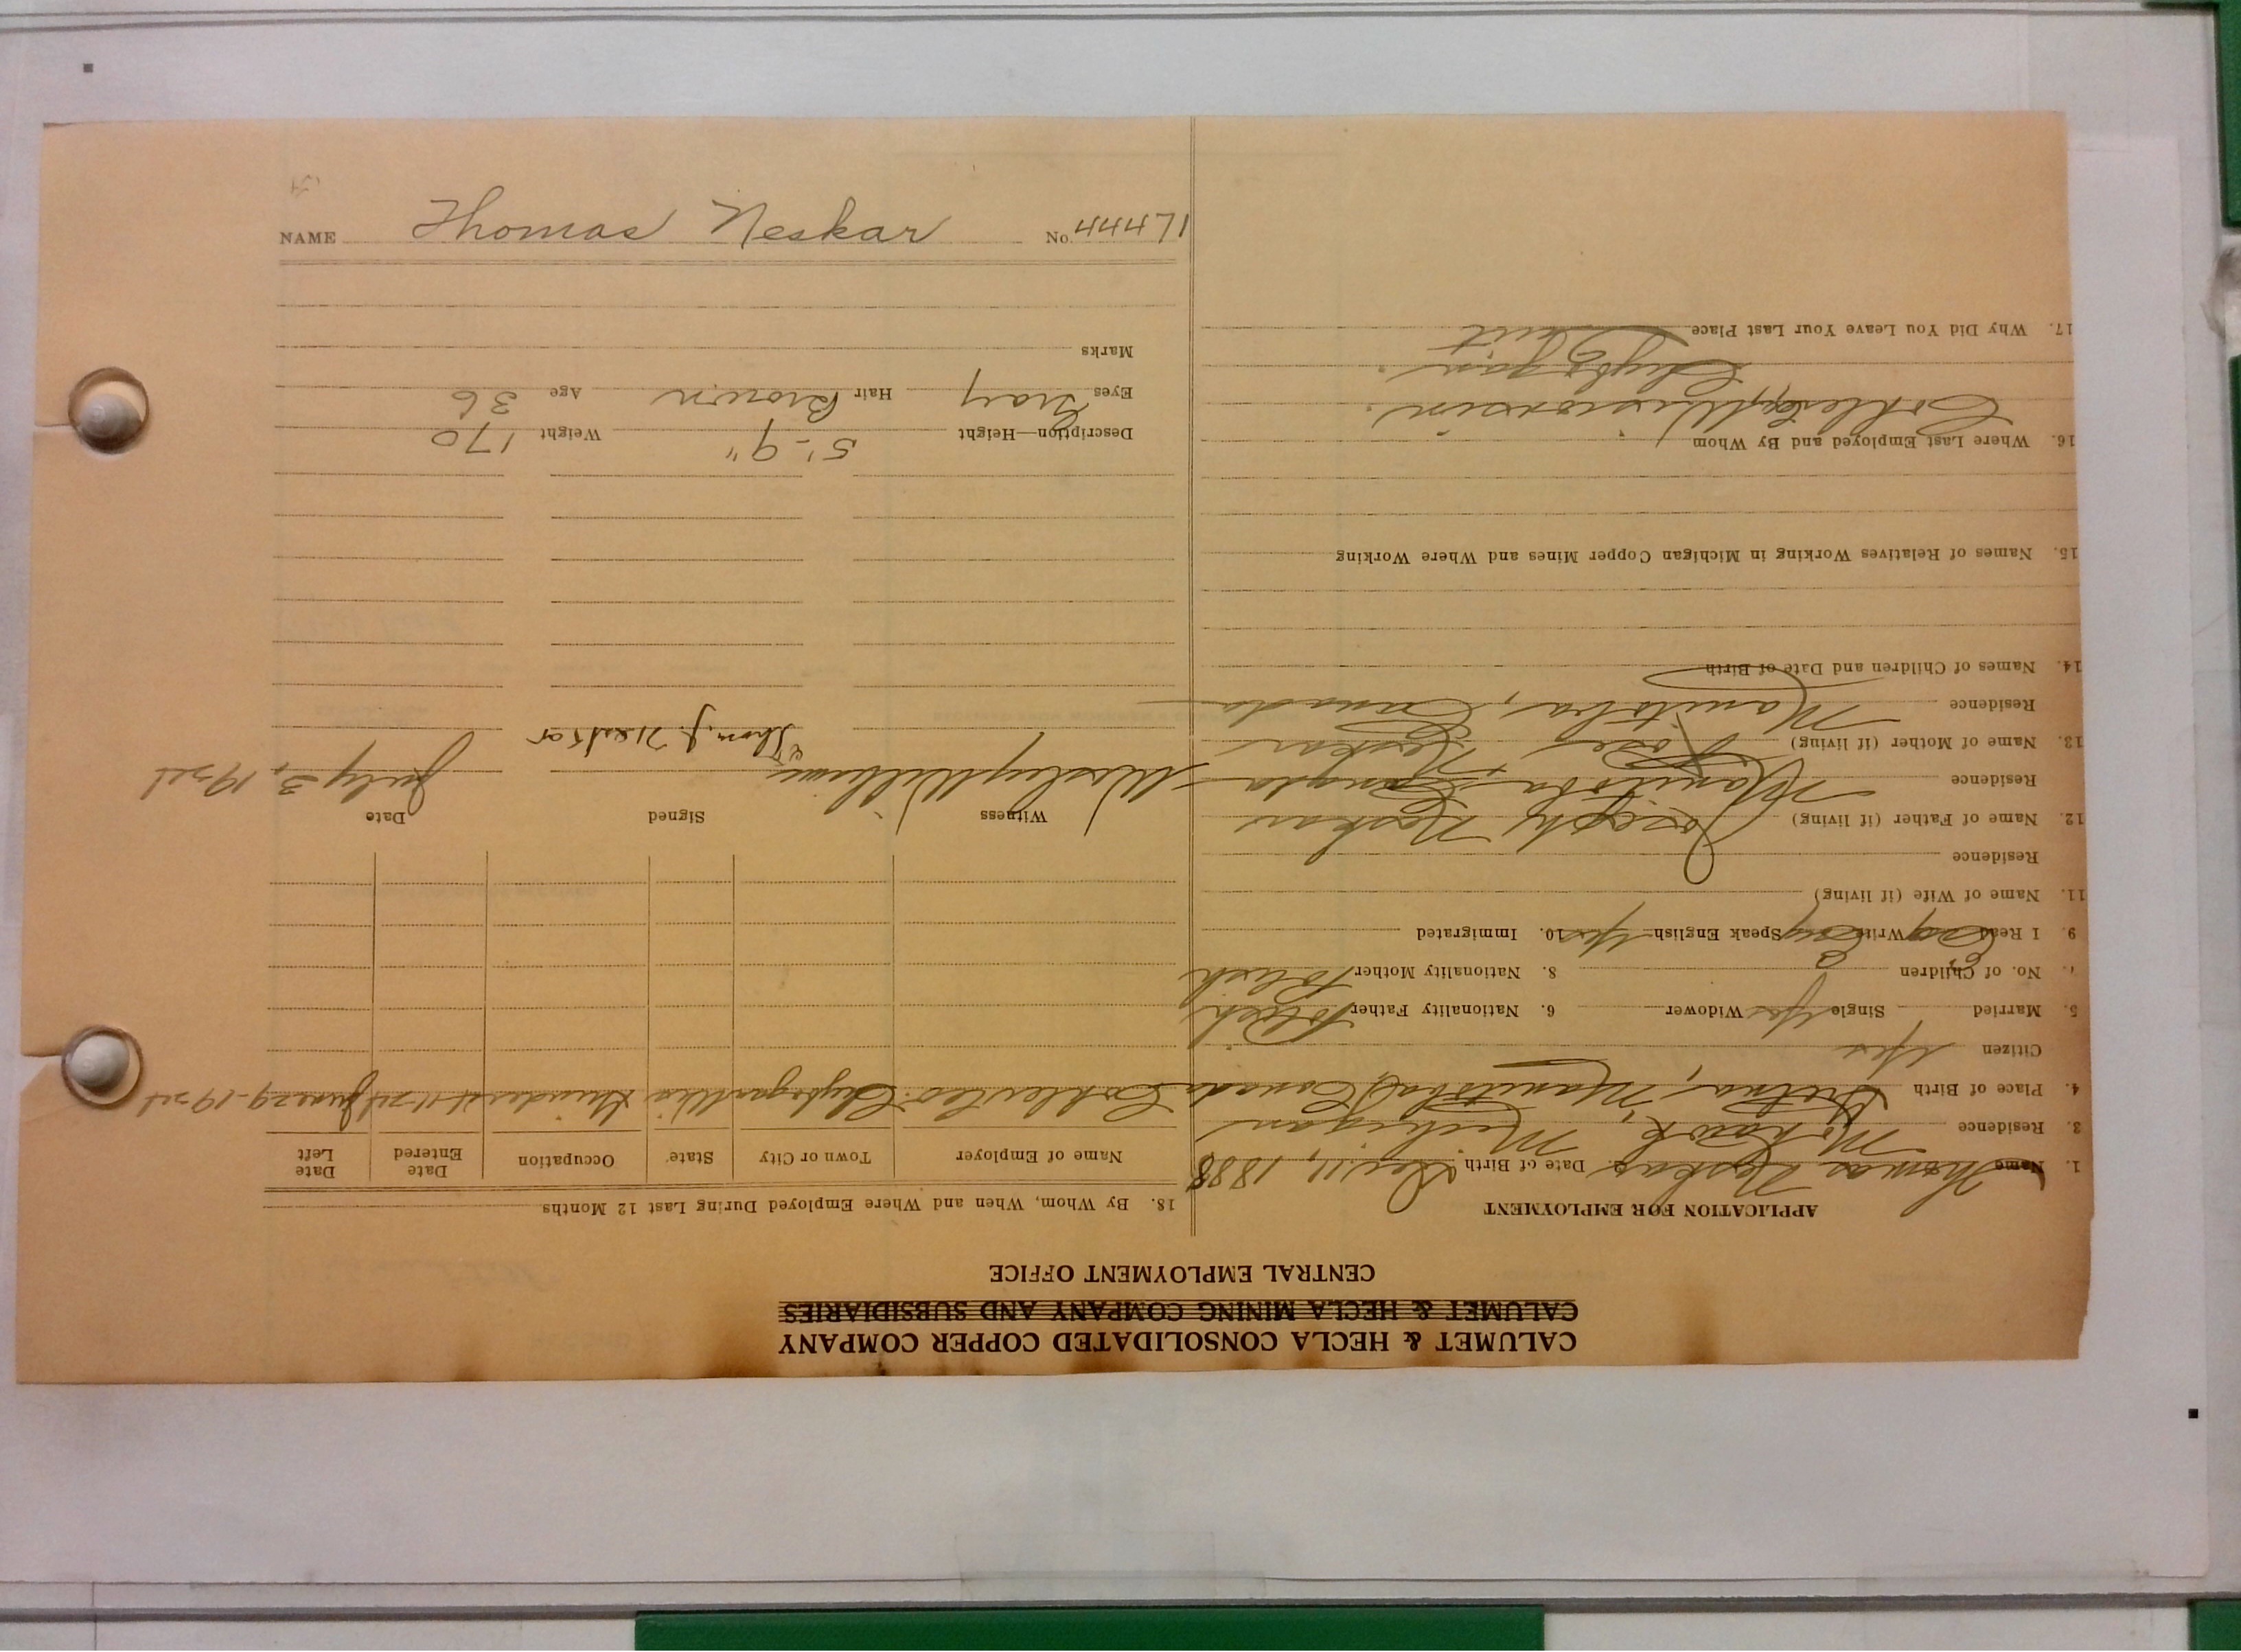 CALUMET & HECLA CONSOLIDATED COPPER COMPANY
CALUMET & HECLA MINING COMPANY AND SUBSIDIARIES
CENTRAL EMPLOYMENT OFFICE
APPLICATION FOR EMPLOYMENT
1. Name Thomas Neskar Date of Birth Dec. 11, 1888
3. Residence Mohawk, Michigan
4. Place of Birth Gretna, Manitoba, Canada
Citizen Yes
5. Married Single Yes Widower 6. Nationality Father Polish
7. No. of Children 8. Nationality Mother Polish
9. I Read Eng Write Eng Speak English Yes 10. Immigrated
11. Name of Wife (if living)
Residence
12. Name of Father (if living) Joseph Neskar
Residence Manitoba Canada
13. Name of Mother (if living) Rose Neskar
Residence Manitoba, Canada
14. Names of Children and Date of Birth
15. Names of Relatives Working in Michigan Copper Mines and Where Working
16. Where Last Employed and By Whom
Wisconsin.
17. Why Did You Leave Your Last Place Quit
18. By Whom, When and Where Employed During Last 12 Months
Name of Employer Town or City State Occupation Date Entered Date Left
Kohler Co. Wis Grinder June 29-1924
Witness Signed Date
Wesley Williams Thom. J. Neskar July 3, 1924
Description—Height 5'-9" Weight 170
Eyes Gray Hair Brown Age 36
Marks
NAME Thomas Neskar No.